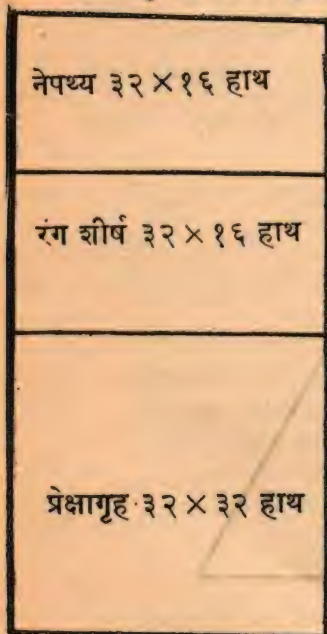 नेपथ्य ३२ × १६ हाथ
रंग शीर्ष ३२ × १६ हाथ
प्रेक्षागृह ३२ × ३२ हाथ